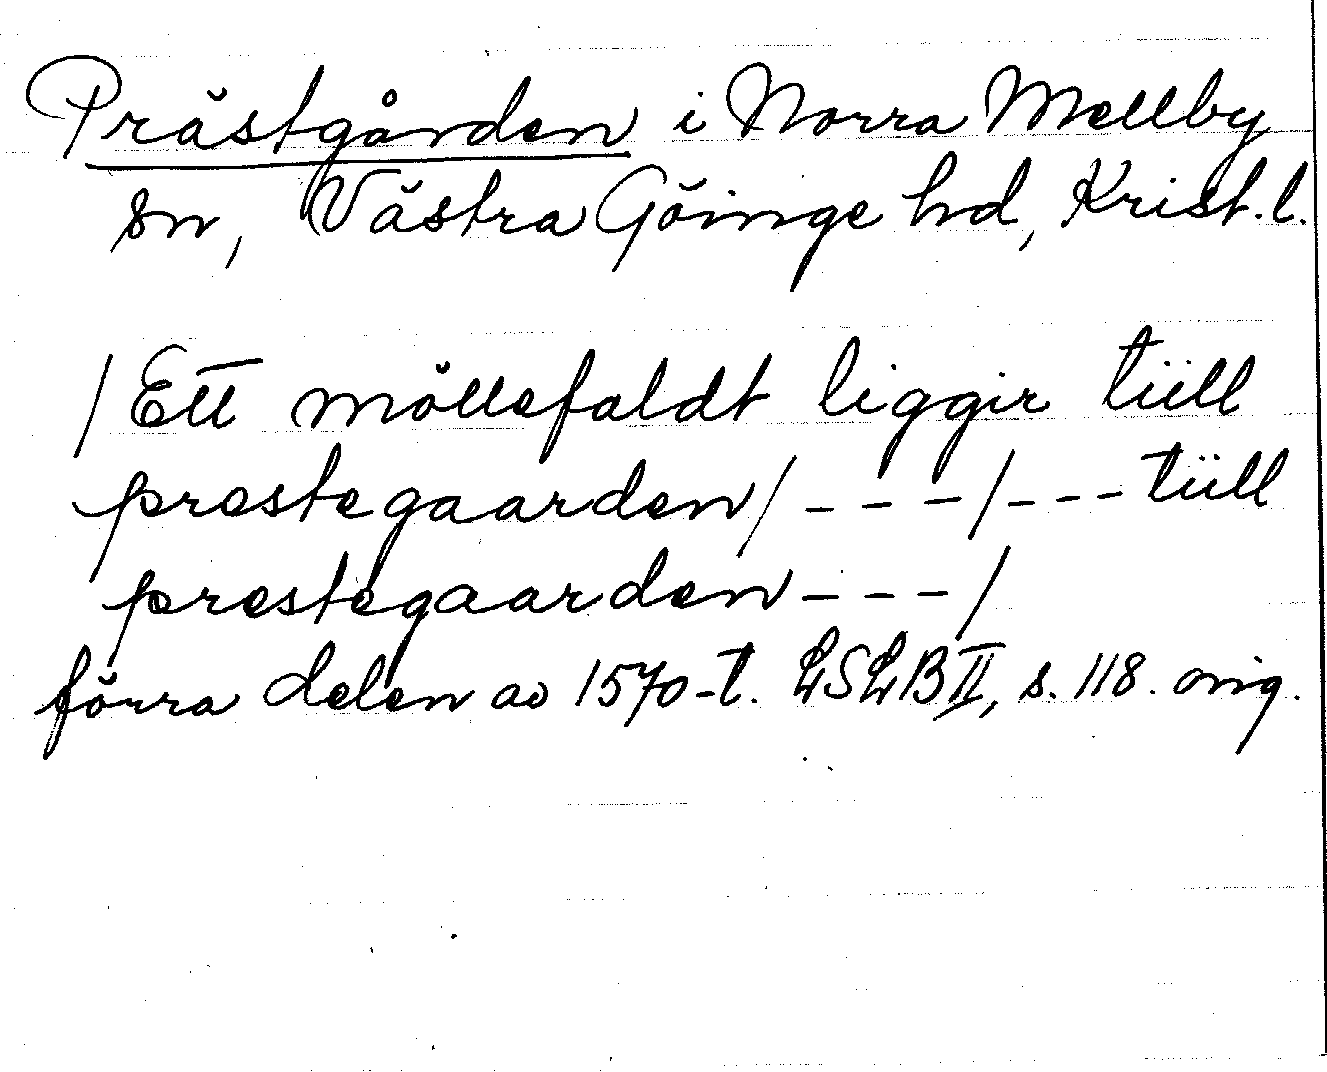 Prästgården i Norra Mellby
sn, Västra Göinge hd, Krist.l.
/Ett möllefaldt liggir tüll
prestegaarden/ - - - / - - - tüll
prestegaarden - - - /
förra delen av 1570-t. LSLB II, s. 118. orig.